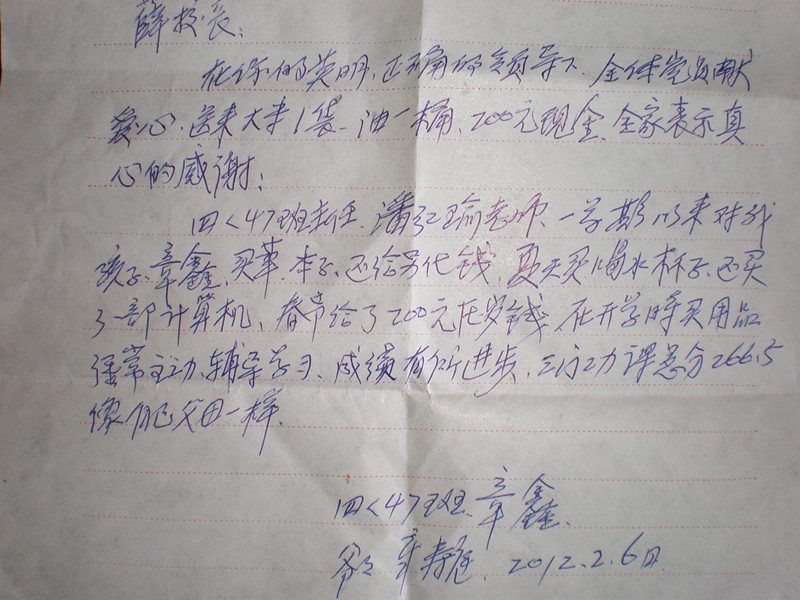 薛校长:
在你的英明,正确的领导下,全体党员献
爱心.送来大米1袋、油一桶、200元现金,全家表示真
心的感谢:
四〈47班主任,潘红瑜老师,一学期以来对我
孩子章鑫,买革 本子,还给 钱,夏天买喝水杯子,还买
了一部计算机,春节给了200元压岁钱,在开学时买用品
经常主动,辅导学习,成绩有所进步,三门功课总分266.5
像自己父母一样.
四〈47班.章鑫.
爷爷 章寿 . 2012.2.6日